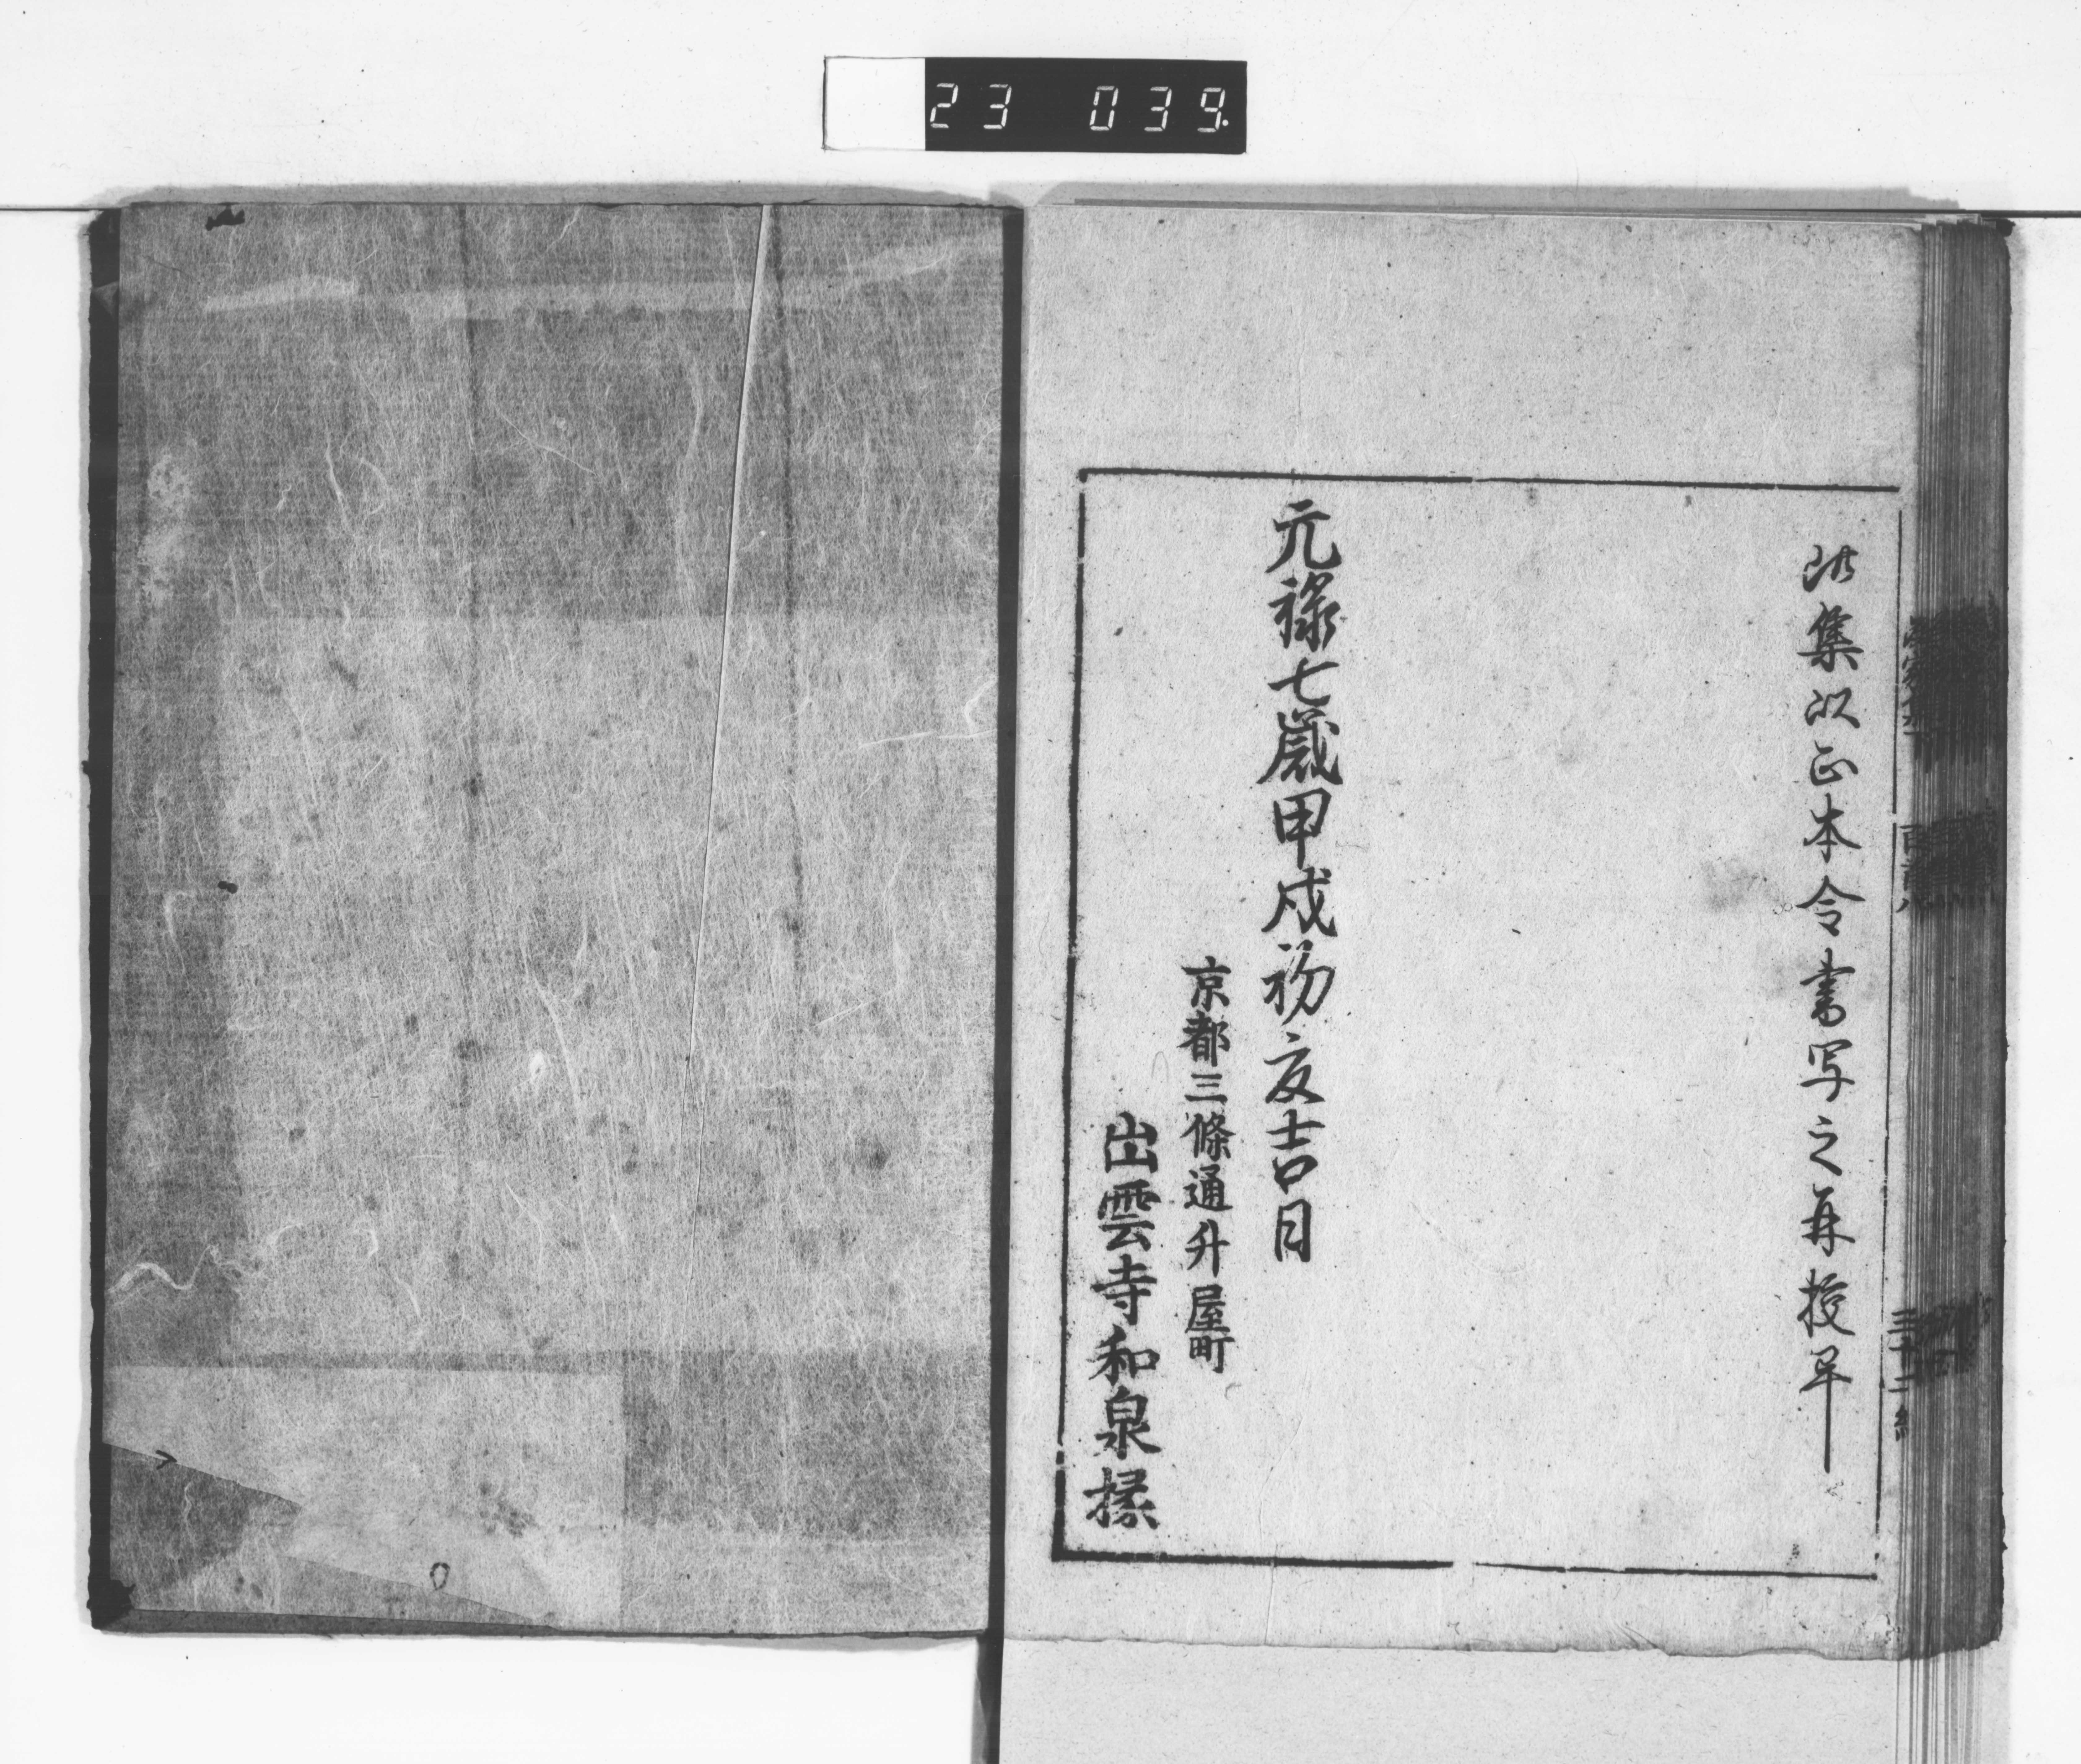 23 039.
此集以正本令書写之再挍早
元禄七歳甲戌初夏吉日
京都三條通升屋町
出雲寺和泉掾